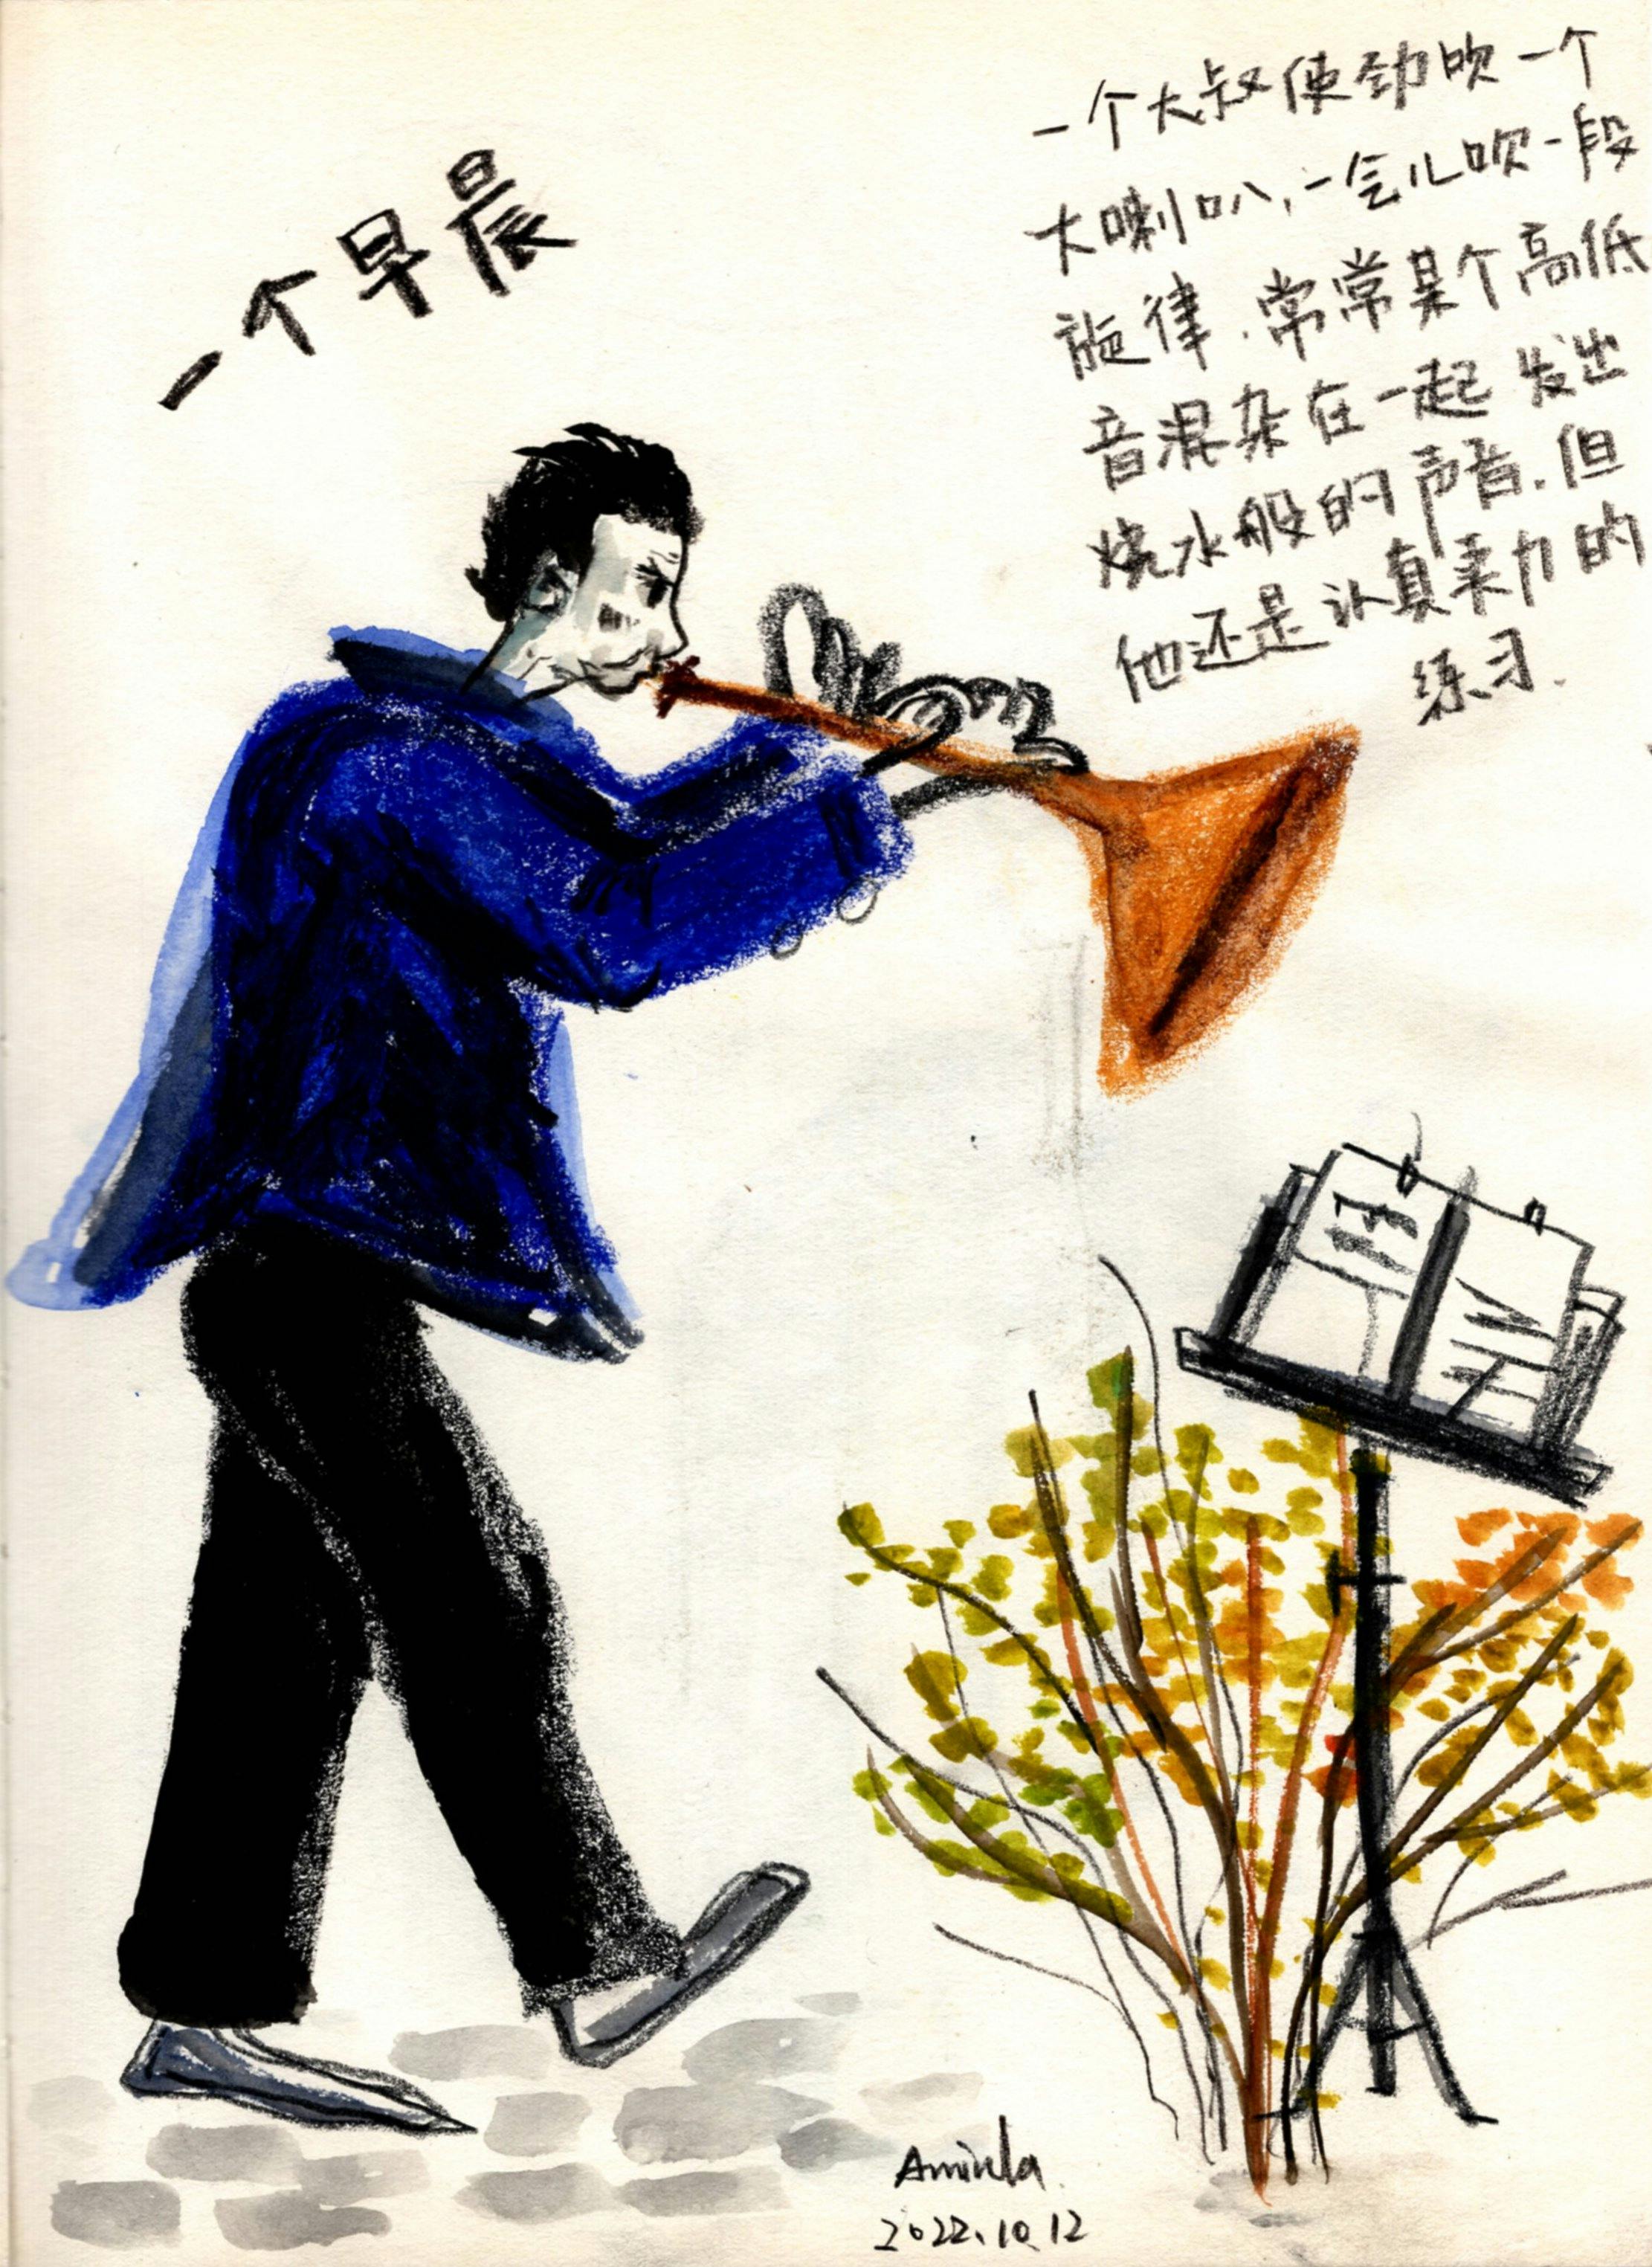 一个早晨
一个大叔使劲吹一个
大喇叭,一会儿吹一段
旋律.常常某个高低
音混杂在一起发出
烧水般的声音.但
他还是认真卖力的
练习.
2022.10.12